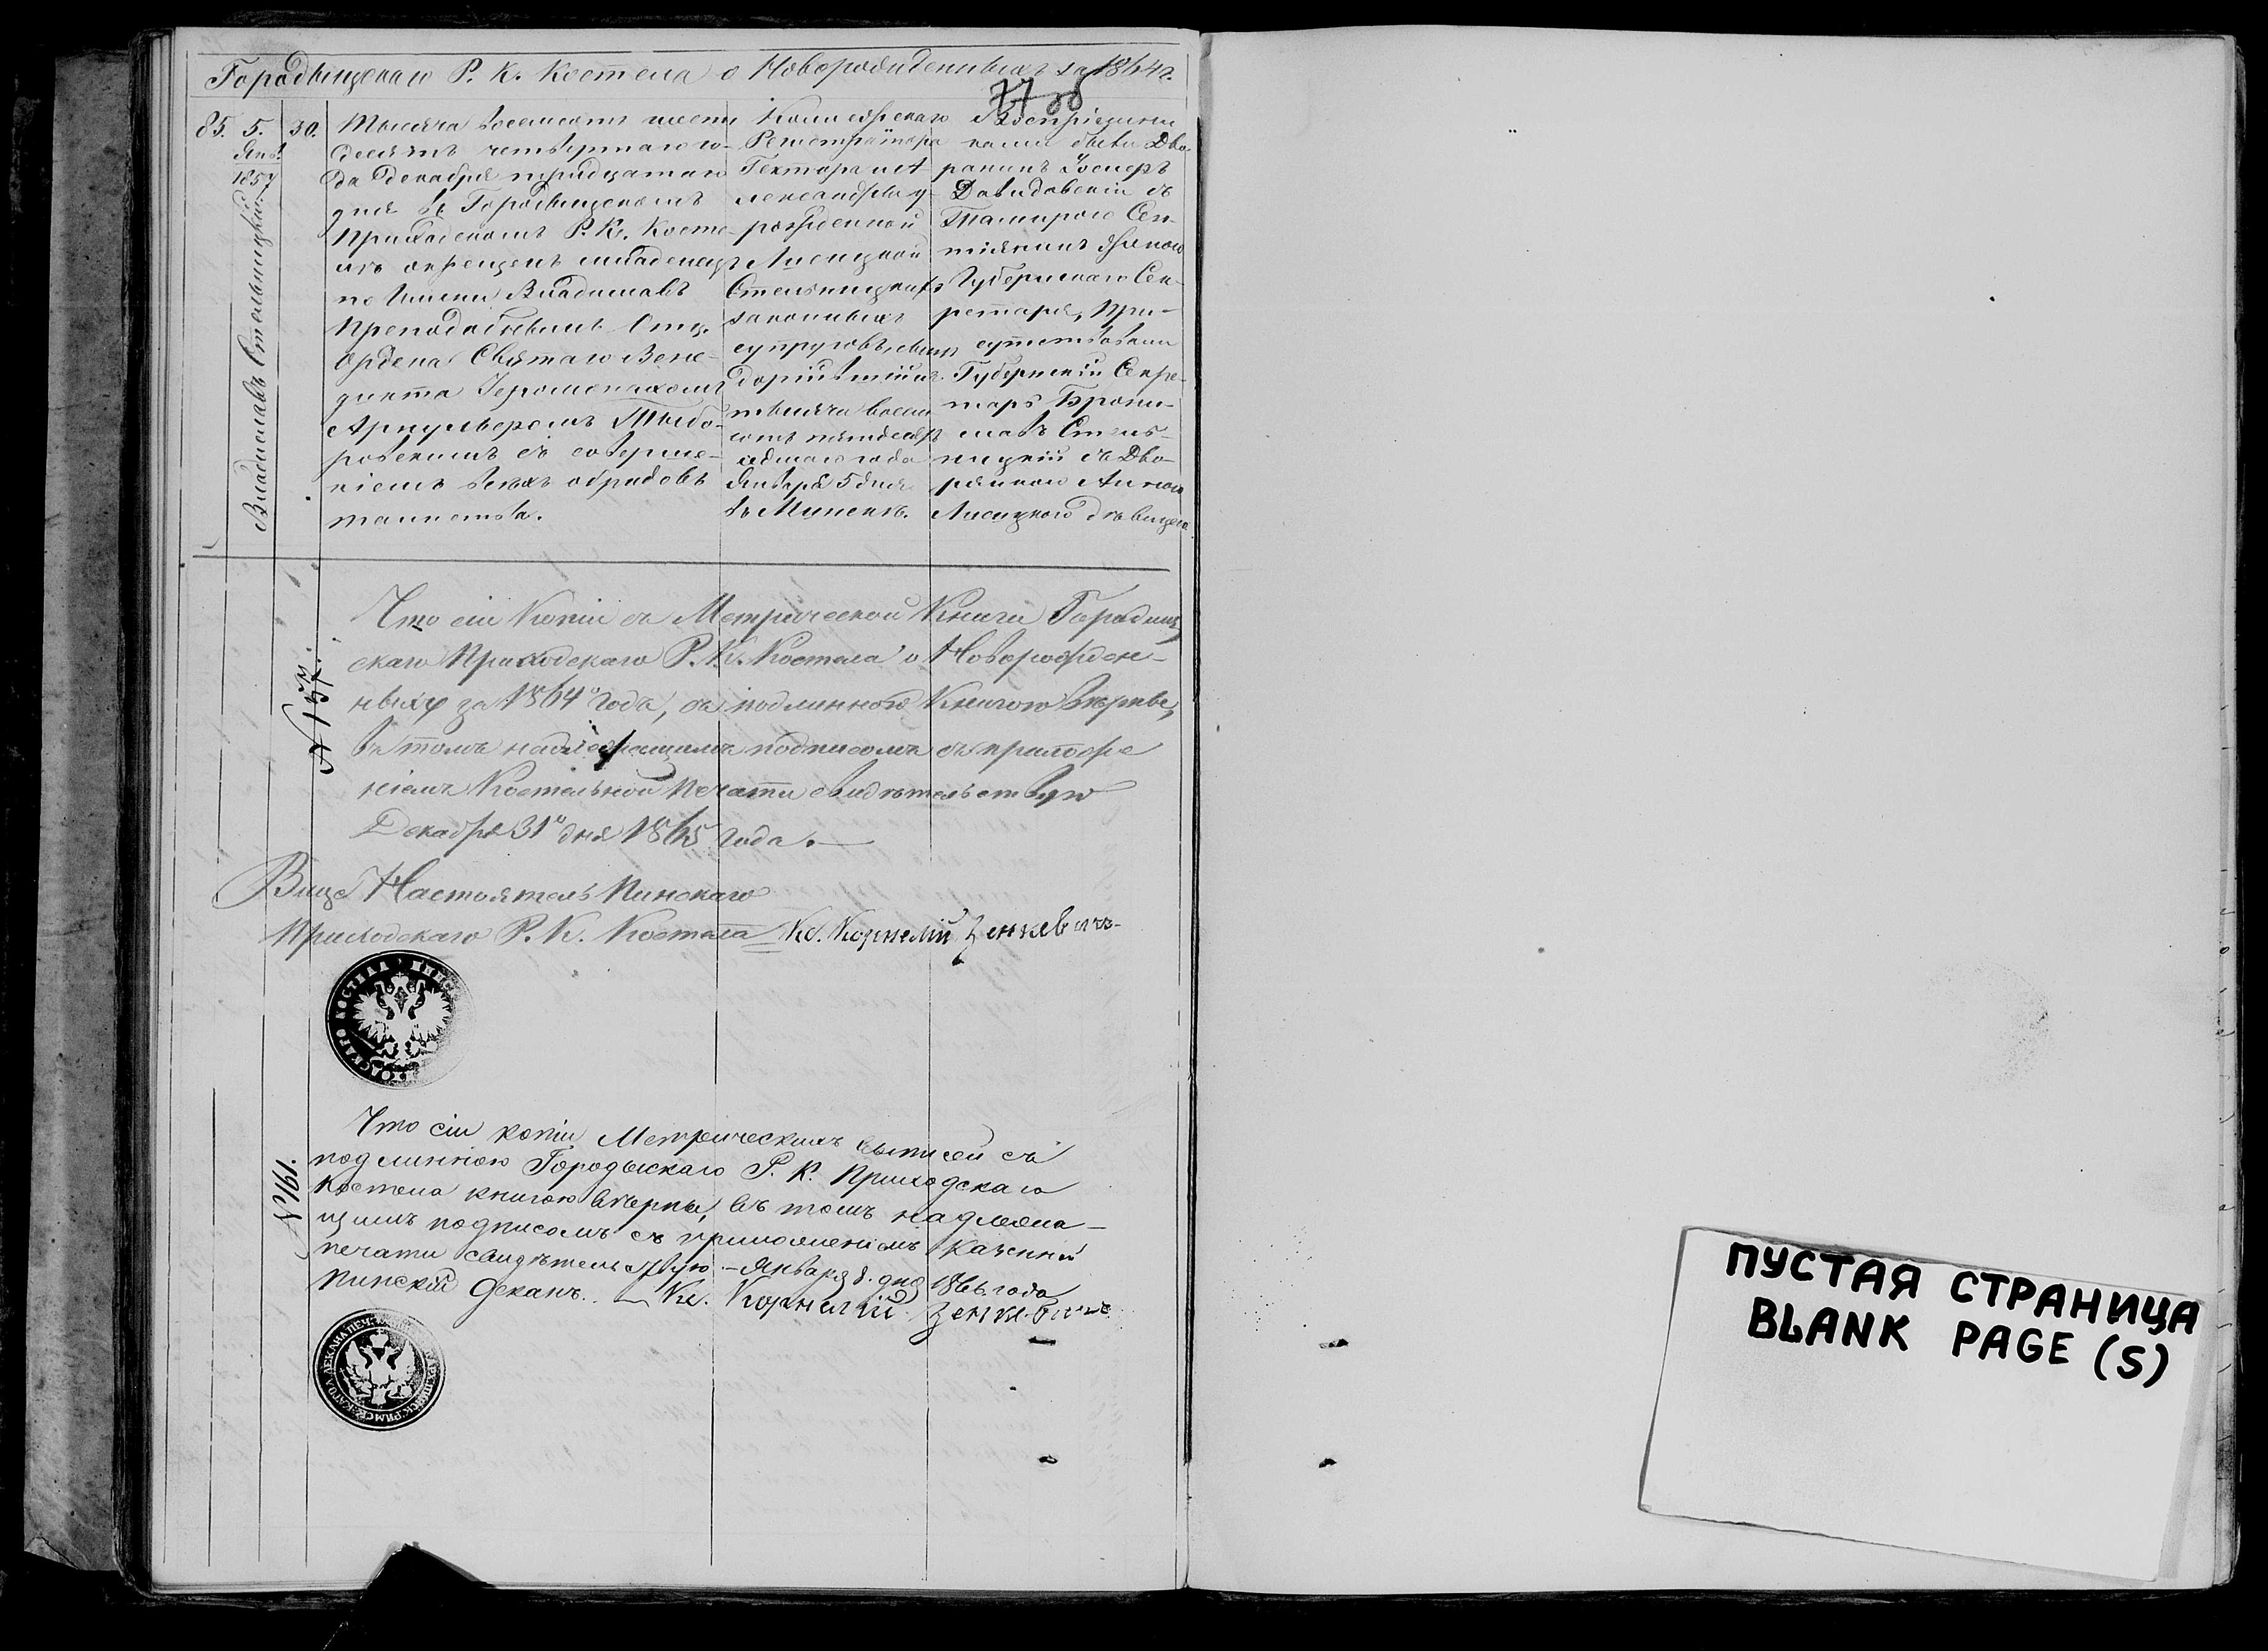 Городыщскаго Р. К. Костела о Новорожденныхъ за 1864 г.
77 об
85. 5. Янв. 1857 30.
Владиславъ Стельницкій.
Тысяча восемсотъ шесть
десятъ четвертаго го-
да Декабря тридцатаго
дня въ Городыщскомъ
Приходскомъ Р. К. Косте-
лѣ окрещенъ младенецъ
по имени Владиславъ
Преподобнымъ Отц.
Ордена Святаго Бене-
дикта Іеромонахомъ
съ соверше-
ніемъ всѣхъ обрядовъ
таинства.
Коллежскаго
Регистратора
Гектора и А-
лександры у-
рожденной
Лисицкой
Стельницкихъ
законныхъ
супруговъ, сынъ
тысяча восем
сотъ пятдесятъ
седмаго года
Января 5 дня
въ Минскѣ.
Воспріемни
ками были Дво-
рянинъ Іосифъ
Давидовскій съ
женою
Губернскаго Сек-
ретаря, При-
сутствовали
Губернскій Секре-
тарь Брони-
славъ Стель-
ницкій съ Дво-
рянкою Анною
Лисицкою дѣвицею.
№ 157.
Что сіи Копіи съ Метрической Книги Городищ
скаго Приходскаго Р. К. Костела о Новорожден-
ныхъ за 1864º года, съ подлинною Книгою вѣрны,
въ томъ надлежащимъ подписомъ съ приложе
ніемъ Костельной печати свидѣтельствую
Декабря 31º дня 1865 года.
Вице Настоятель Пинскаго
Приходскаго Р. К. Костела Кс. Корнелій Зенкевичъ
№ 161.
Что сіи копіи Метрическихъ выписей съ
подлинною Городыскаго Р. К. Приходскаго
Костела книгою вѣрны, въ томъ надлежа-
щимъ подписомъ съ приложеніемъ Казенной
печати свидѣтельствую. – Января 8. дня 1866 года
Пинскій Деканъ. – Кс. Корнелій Зенкевичъ
ПУСТАЯ СТРАНИЦА
BLANK PAGE (S)